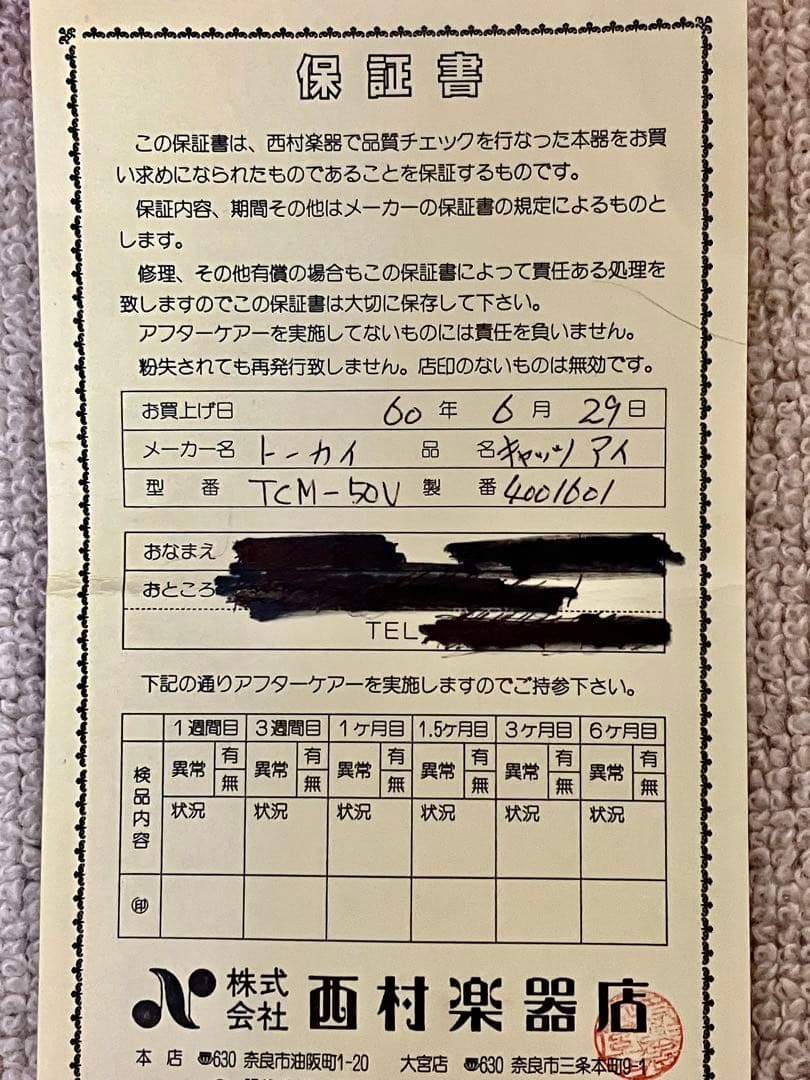 保証書
この保証書は、西村楽器で品質チェックを行なった本器をお買
い求めになられたものであることを保証するものです。
保証内容、期間その他はメーカーの保証書の規定によるものと
します。
修理、その他有償の場合もこの保証書によって責任ある処理を
致しますのでこの保証書は大切に保存して下さい。
アフターケアーを実施してないものには責任を負いません。
紛失されても再発行致しません。店印のないものは無効です。
お買上げ日 60年 6月 29日
メーカー名 トーカイ 品名 キャッツアイ
型番 TCM-50V 製番 4001601
おなまえ
おところ
TEL
下記の通りアフターケアーを実施しますのでご持参下さい。
1週間目 3週間目 1ヶ月目 1.5ヶ月目 3ヶ月目 6ヶ月目
検品内容 異常 有 無 異常 有 無 異常 有 無 異常 有 無 異常 有 無 異常 有 無
状況 状況 状況 状況 状況 状況
㊞
株式会社 西村楽器店
本店 〠630 奈良市油阪町1-20 大宮店 〠630 奈良市三条本町9-1